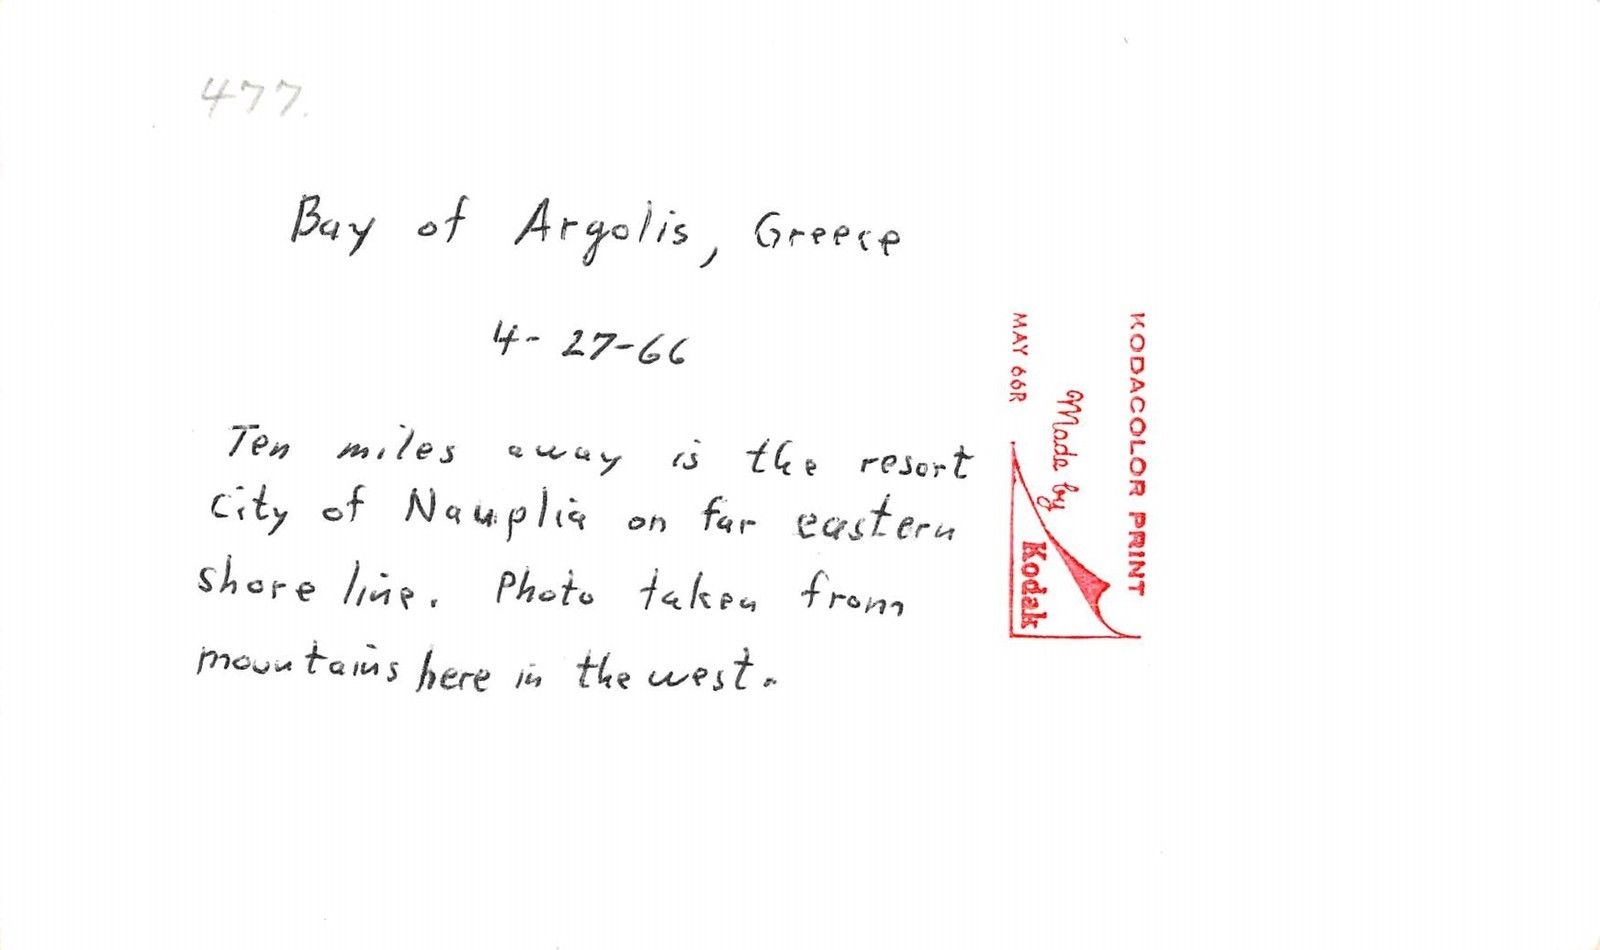 477.
Bay of Argolis, Greece
4-27-66
Ten miles away is the resort
city of Nauplia on far eastern
shore line. Photo taken from
mountains here in the west.
KODACOLOR PRINT
Made by
Kodak
MAY 66R